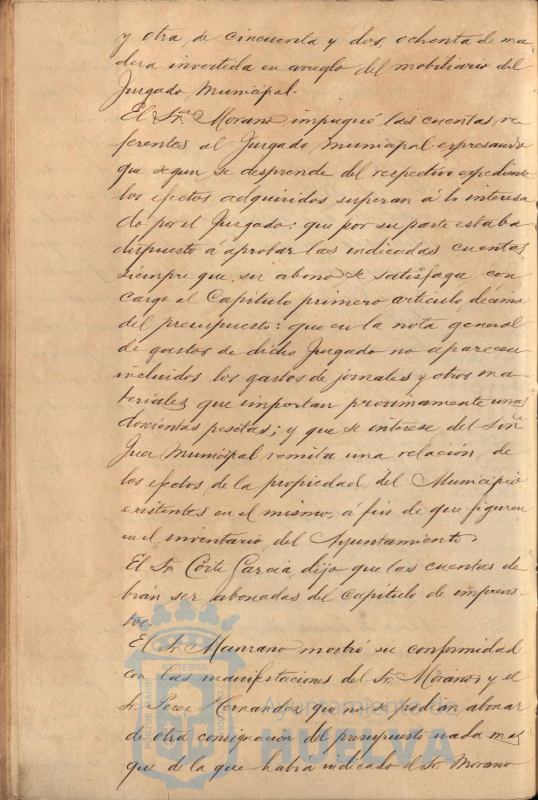 y otra de cincuenta y dos, ochenta de ma-
dera invertida en arreglo del mobiliario del
Juzgado Municipal.
El Sr. Morano impugnó las cuentas re-
ferentes al Juzgado Municipal expresando
que segun se desprende del respectivo expediente
los efectos adquiridos superan á lo interesa
do por el Juzgado: que por su parte estaba
dispuesto á aprobar las indicadas cuentas,
siempre que su abono se satisfaga con
cargo al Capítulo primero artículo décimo
del presupuesto: que en la nota general
de gastos de dicho Juzgado no aparecen
incluidos los gastos de jornales y otros ma-
teriales que importan proximamente unas
doscientas pesetas; y que se interese del Señor
Juez Municipal remita una relación de
los efectos de la propiedad del Municipio
existentes en el mismo, á fin de que figuren
en el inventario del Ayuntamiento.
El Sr. Corte García dijo que las cuentas de-
brán ser abonadas del Capítulo de imprevis-
tos.
El Sr. Manzano mostró su conformidad
con las manifestaciones del Sr. Morano y el
Sr. Perez Hernandez que no se podían abonar
de otra consignación del presupuesto nada mas
que de la que habia indicado el Sr. Morano
PORTUS MARIS
ET TERRÆ
Ayuntamiento de
HUELVA